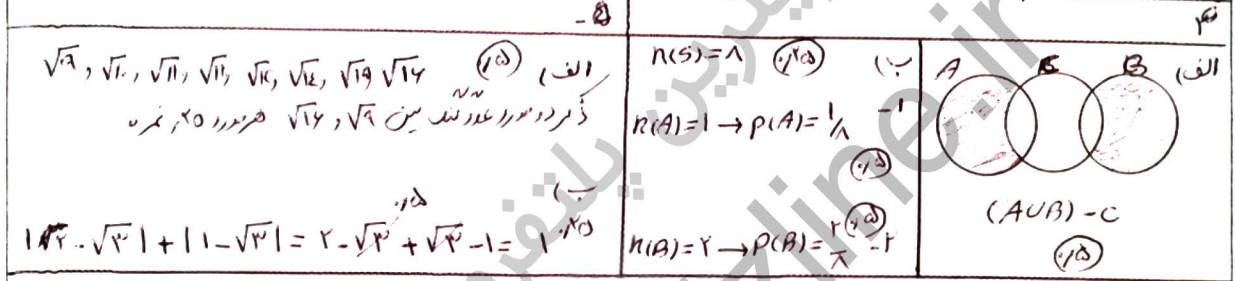 ۴
الف)
A B B
(A∪B)-C
۰/۵
ب)
n(S)=۸ ۰/۲۵
۱- n(A)=۱ → P(A)=۱/۸
۰/۵
۲- n(B)=۲ → P(B)=۲/۸ ۰/۵
۵-
الف) ۰/۵
√۹, √۱۰, √۱۱, √۱۲, √۱۳, √۱۴, √۱۵, √۱۶
ذکر دو مورد عدد بین √۹ و √۱۶ هر مورد ۰/۲۵ نمره
ب)
|۲-√۳|+|۱-√۳|=۲-√۳+√۳-۱=۱
۰/۵ ۰/۲۵